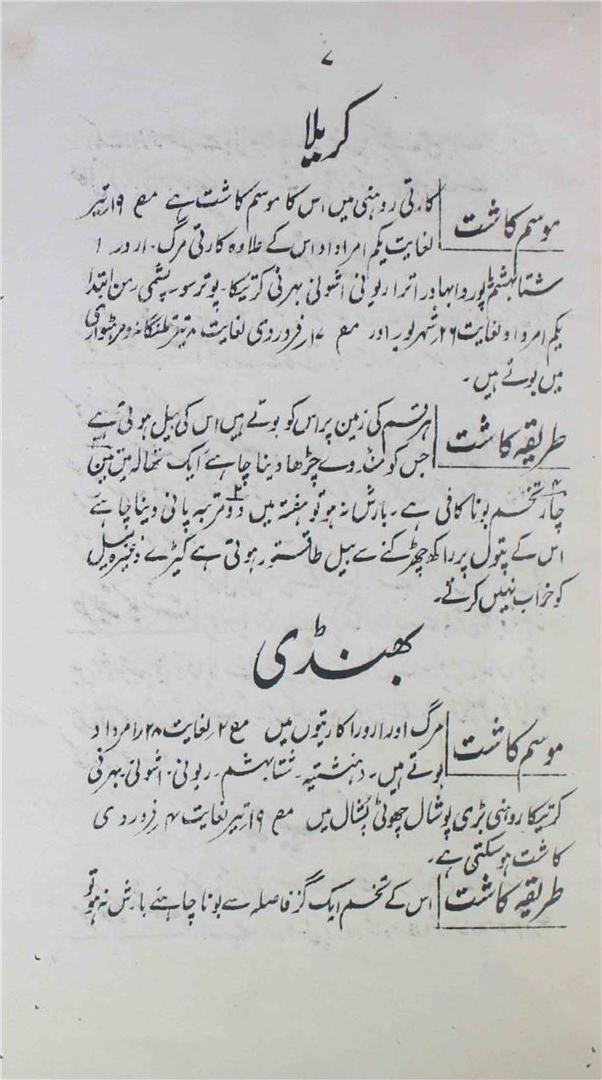 ۷
کریلا
موسم کاشت
کارتی روہنی میں اس کا موسم کاشت ہے مع ۱۹؍تیر
لغایت یکم امرداد اس کے علاوہ کارتی مرگ۔ اردرا
شتابہشم پوروابہادرا اترا ریونی اشونی بہرنی کرتیکا۔ پوترسو۔ پشمی۔ من ابتدا
یکم امرداد لغایت ۲۶ شہریور اور مع ۱۷؍فروردی لغایت ۸ تیر تلنگانہ و مرہٹواری
میں بوتے ہیں۔
طریقہ کاشت
ہر قسم کی زمین پر اس کو بوتے ہیں اس کی بیل ہوتی ہے
جس کو منڈوے چڑھا دینا چاہئے ایک تھالہ میں تین
چار ۴ تخم بونا کافی ہے۔ بارش نہ ہو تو ہفتہ میں دو ۲ مرتبہ پانی دینا چاہئے
اس کے پتوں پر راکھ چھڑکنے سے بیل طاقتور ہوتی ہے کیڑے وغیرہ بیل
کو خراب نہیں کرتے۔
بھنڈی
موسم کاشت
مرگ اور ارورا کارتیوں میں مع ۲؍ لغایت ۲۸؍امرداد
بوتے ہیں۔ دہنشتیہ۔ شتابہشم۔ ریونی۔ اشونی۔ بہرنی
کرتیکا روہنی بڑی پوشال چھوٹی پشال میں مع ۱۹؍تیر لغایت ۴؍فروردی
کاشت ہو سکتی ہے۔
طریقہ کاشت
اس کے تخم ایک گز فاصلہ سے بونا چاہئے بارش نہ ہو تو